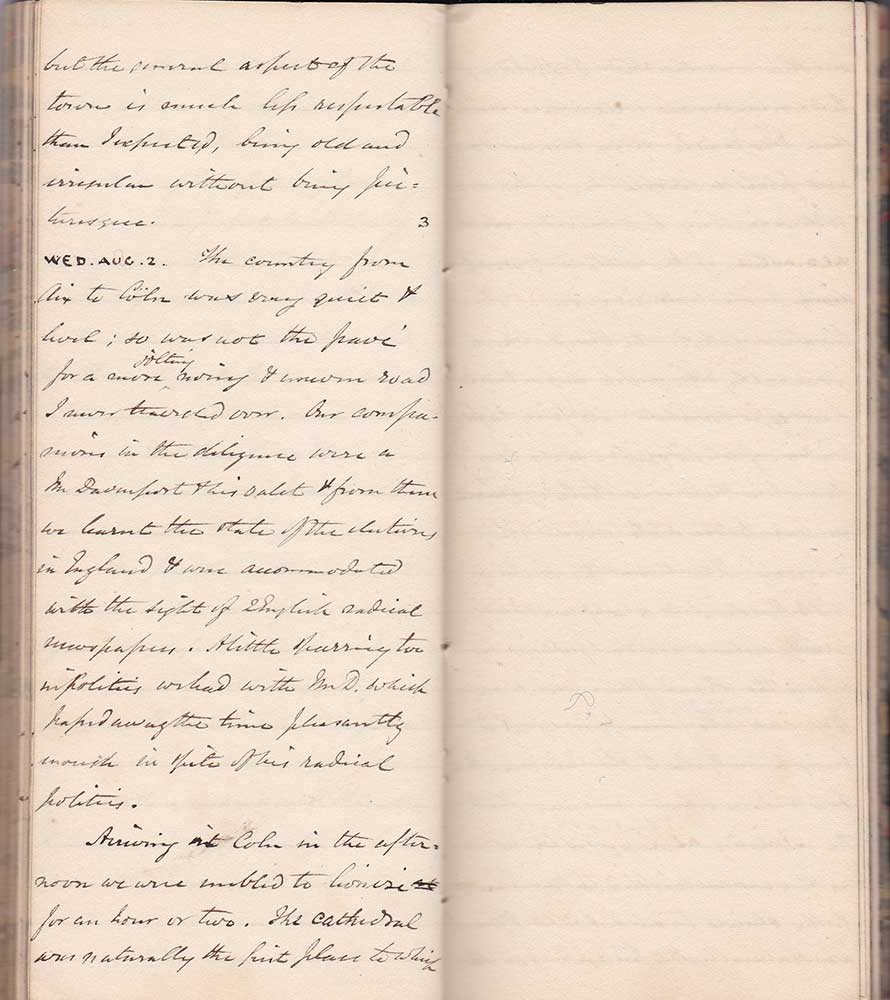 but the general aspect of the
town is much less respectable
than I expected, being old and
irregular without being pic=
turesque. 3
WED. AUG. 2. The country from
Aix to Cöln was very quiet &
level; so was not the pavé
jolting
for a more & uneven road
I never traveled over. Our compa-
nions in the diligence were a
Mr Davenport & his valet & from them
we learnt the state of the elections
in England & were accommodated
with the sight of 2 English radical
newspapers. A little sparring too
in Politics we had with Mr D. which
passed away the time pleasantly
enough in spite of his radical
politics.
Arriving at Coln in the after=
noon we were enabled to lionize
for an hour or two. The cathedral
was naturally the first place to which